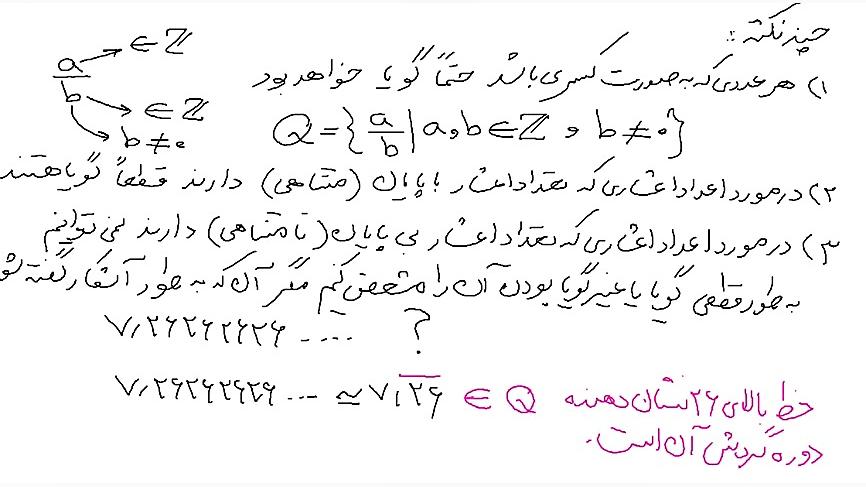 چند نکته :
a/b → ∈ ℤ
→ ∈ ℤ
→ b ≠ ۰
۱) هر عددی که به صورت کسری باشد حتماً گویا خواهد بود
Q = { a/b | a و b ∈ ℤ و b ≠ ۰ }
۲) در مورد اعداد اعشاری که تعداد اعشار با پایان (متناهی) دارند قطعاً گویا هستند
۳) در مورد اعداد اعشاری که تعداد اعشار بی پایان (نامتناهی) دارند نمی توانیم
به طور قطعی گویا یا غیر گویا بودن آن را مشخص کنیم مگر آن که به طور آشکار گفته شو
۷٫۲۶۲۶۲۶۲۶ .... ؟
۷٫۲۶۲۶۲۶۲۶ ... ≃ ۷٫۲۶̅ ∈ Q
خط بالای ۲۶ نشان دهنه
دوره گردش آن است.